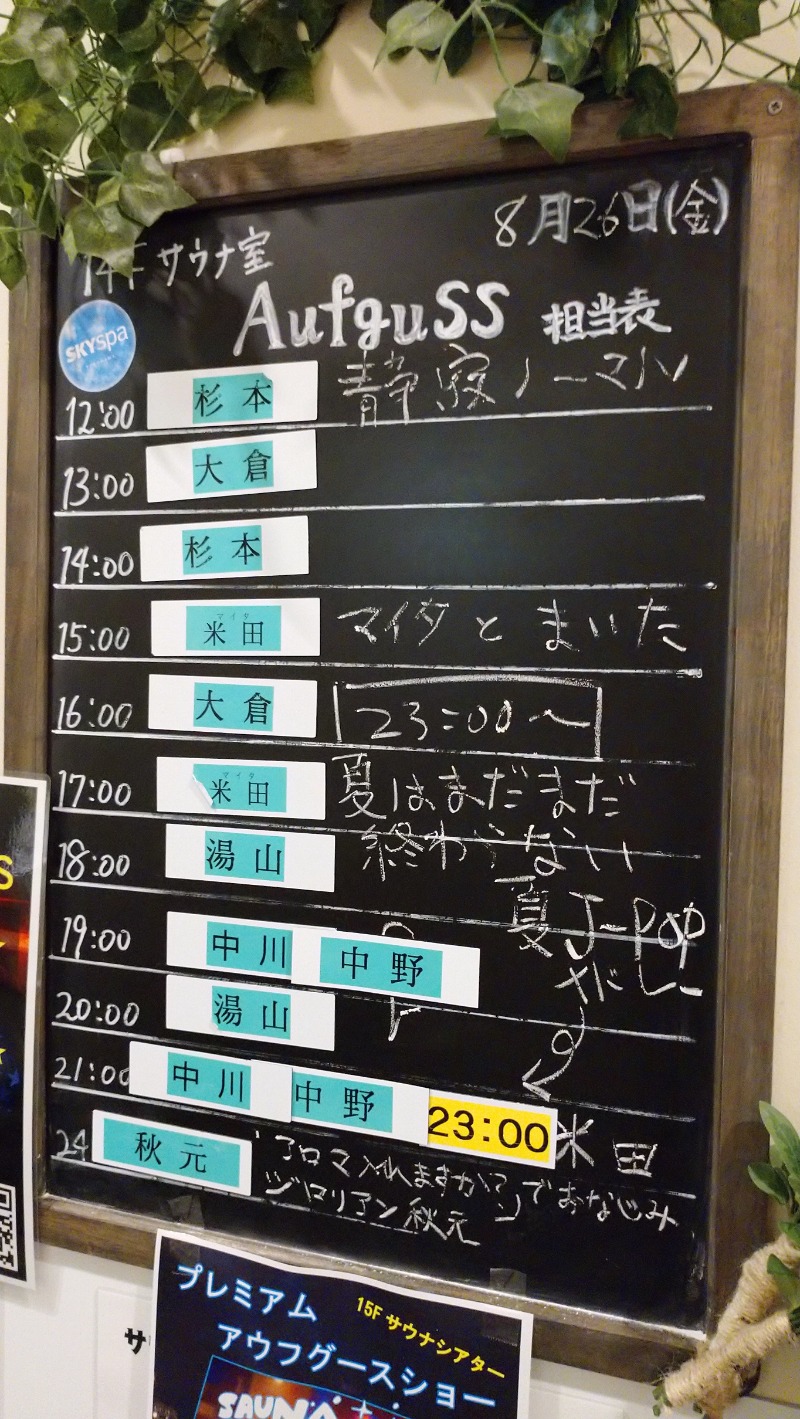 8月26日(金)
14F サウナ室
Aufguss 担当表
SKYspa
12:00 杉本 静寂ノーマル
13:00 大倉
14:00 杉本
15:00 マイタ 米田 マイタとまいた
16:00 大倉 23:00〜
17:00 マイタ 米田 夏はまだまだ
18:00 湯山 終わらない
夏J-POP
19:00 中川 中野
メドレー
20:00 湯山
21:00 中川 中野 23:00 米田
24 秋元 「アロマ入れますか?」でおなじみ
ジロリアン秋元
プレミアム 15F サウナシアター
アウフグースショー
SAUNA
サ
S